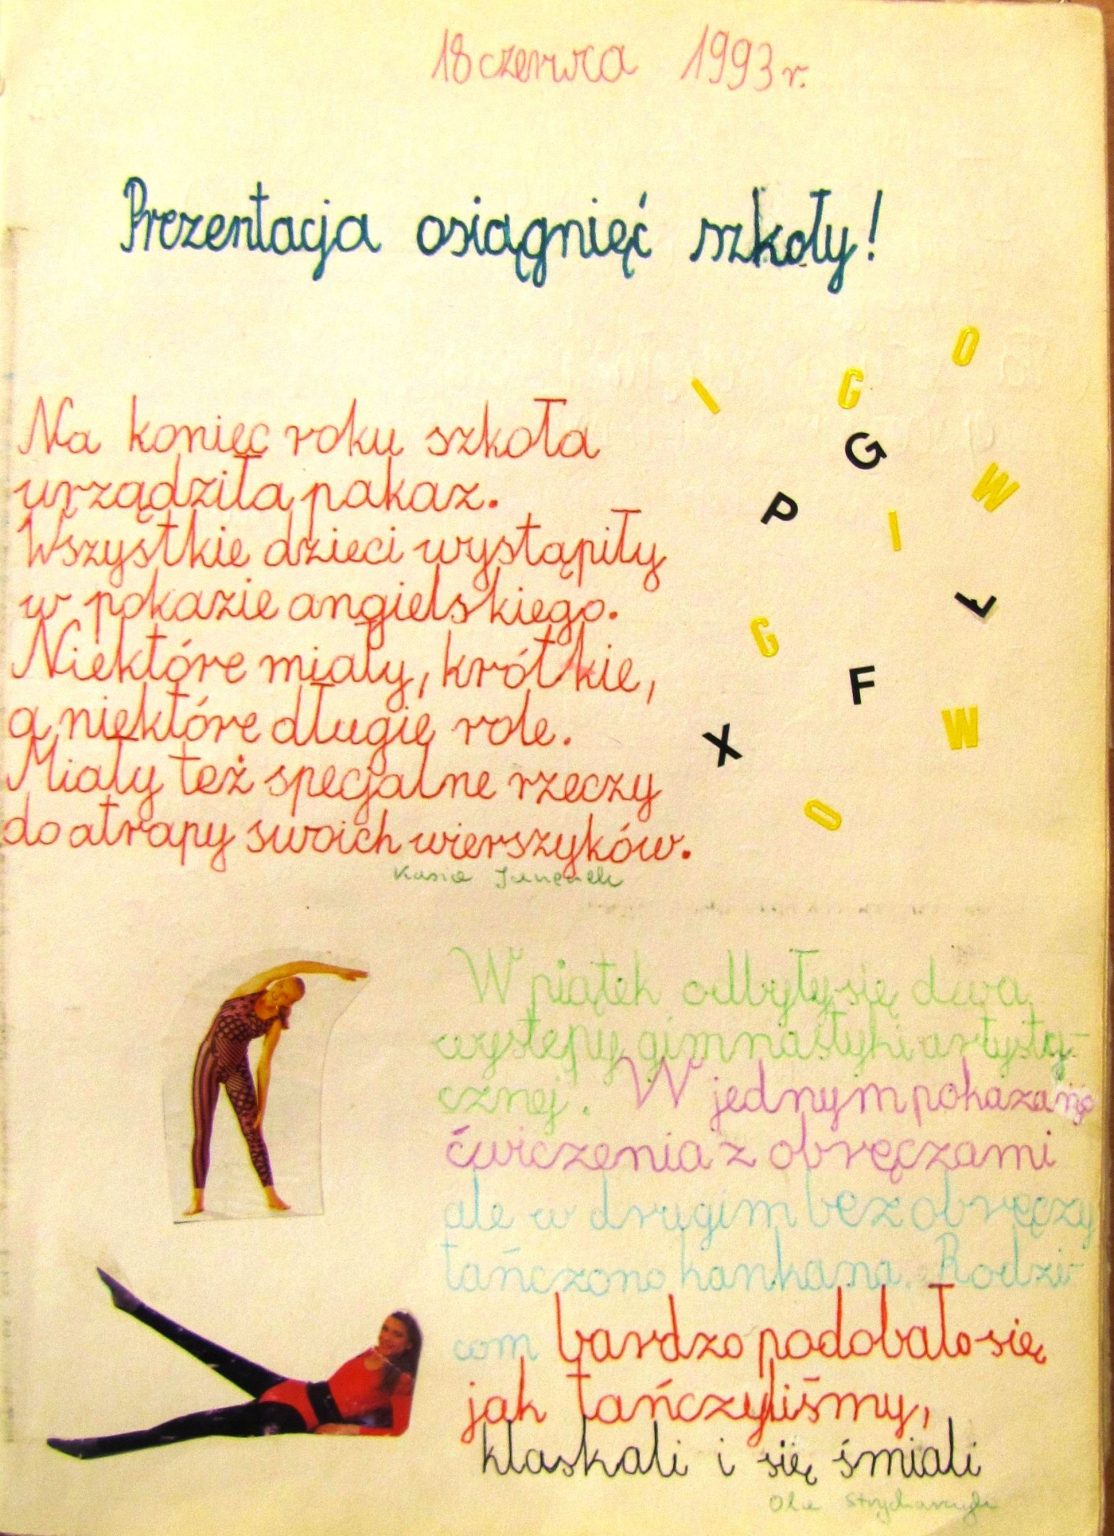 18 czerwca 1993 r.
Prezentacja osiągnięć szkoły!
Na koniec roku szkoła
urządziła pakaz.
Wszystkie dzieci wystąpiły
w pokazie angielskiego.
Niektóre miały, krótkie,
a niektóre długie role.
Miały też specjalne rzeczy
do atrapy swoich wierszyków.
Kasia
I G O
G W
P I
Ł
G F
X W
O
W piątek odbyły się dwa
występy gimnastyki artysty-
cznej. W jednym pokazano
ćwiczenia z obręczami
ale w drugim bez obręczy
tańczono kankana. Rodzi-
com bardzo podobało się
jak tańczyliśmy,
klaskali i się śmiali
Ola Strycharczyk